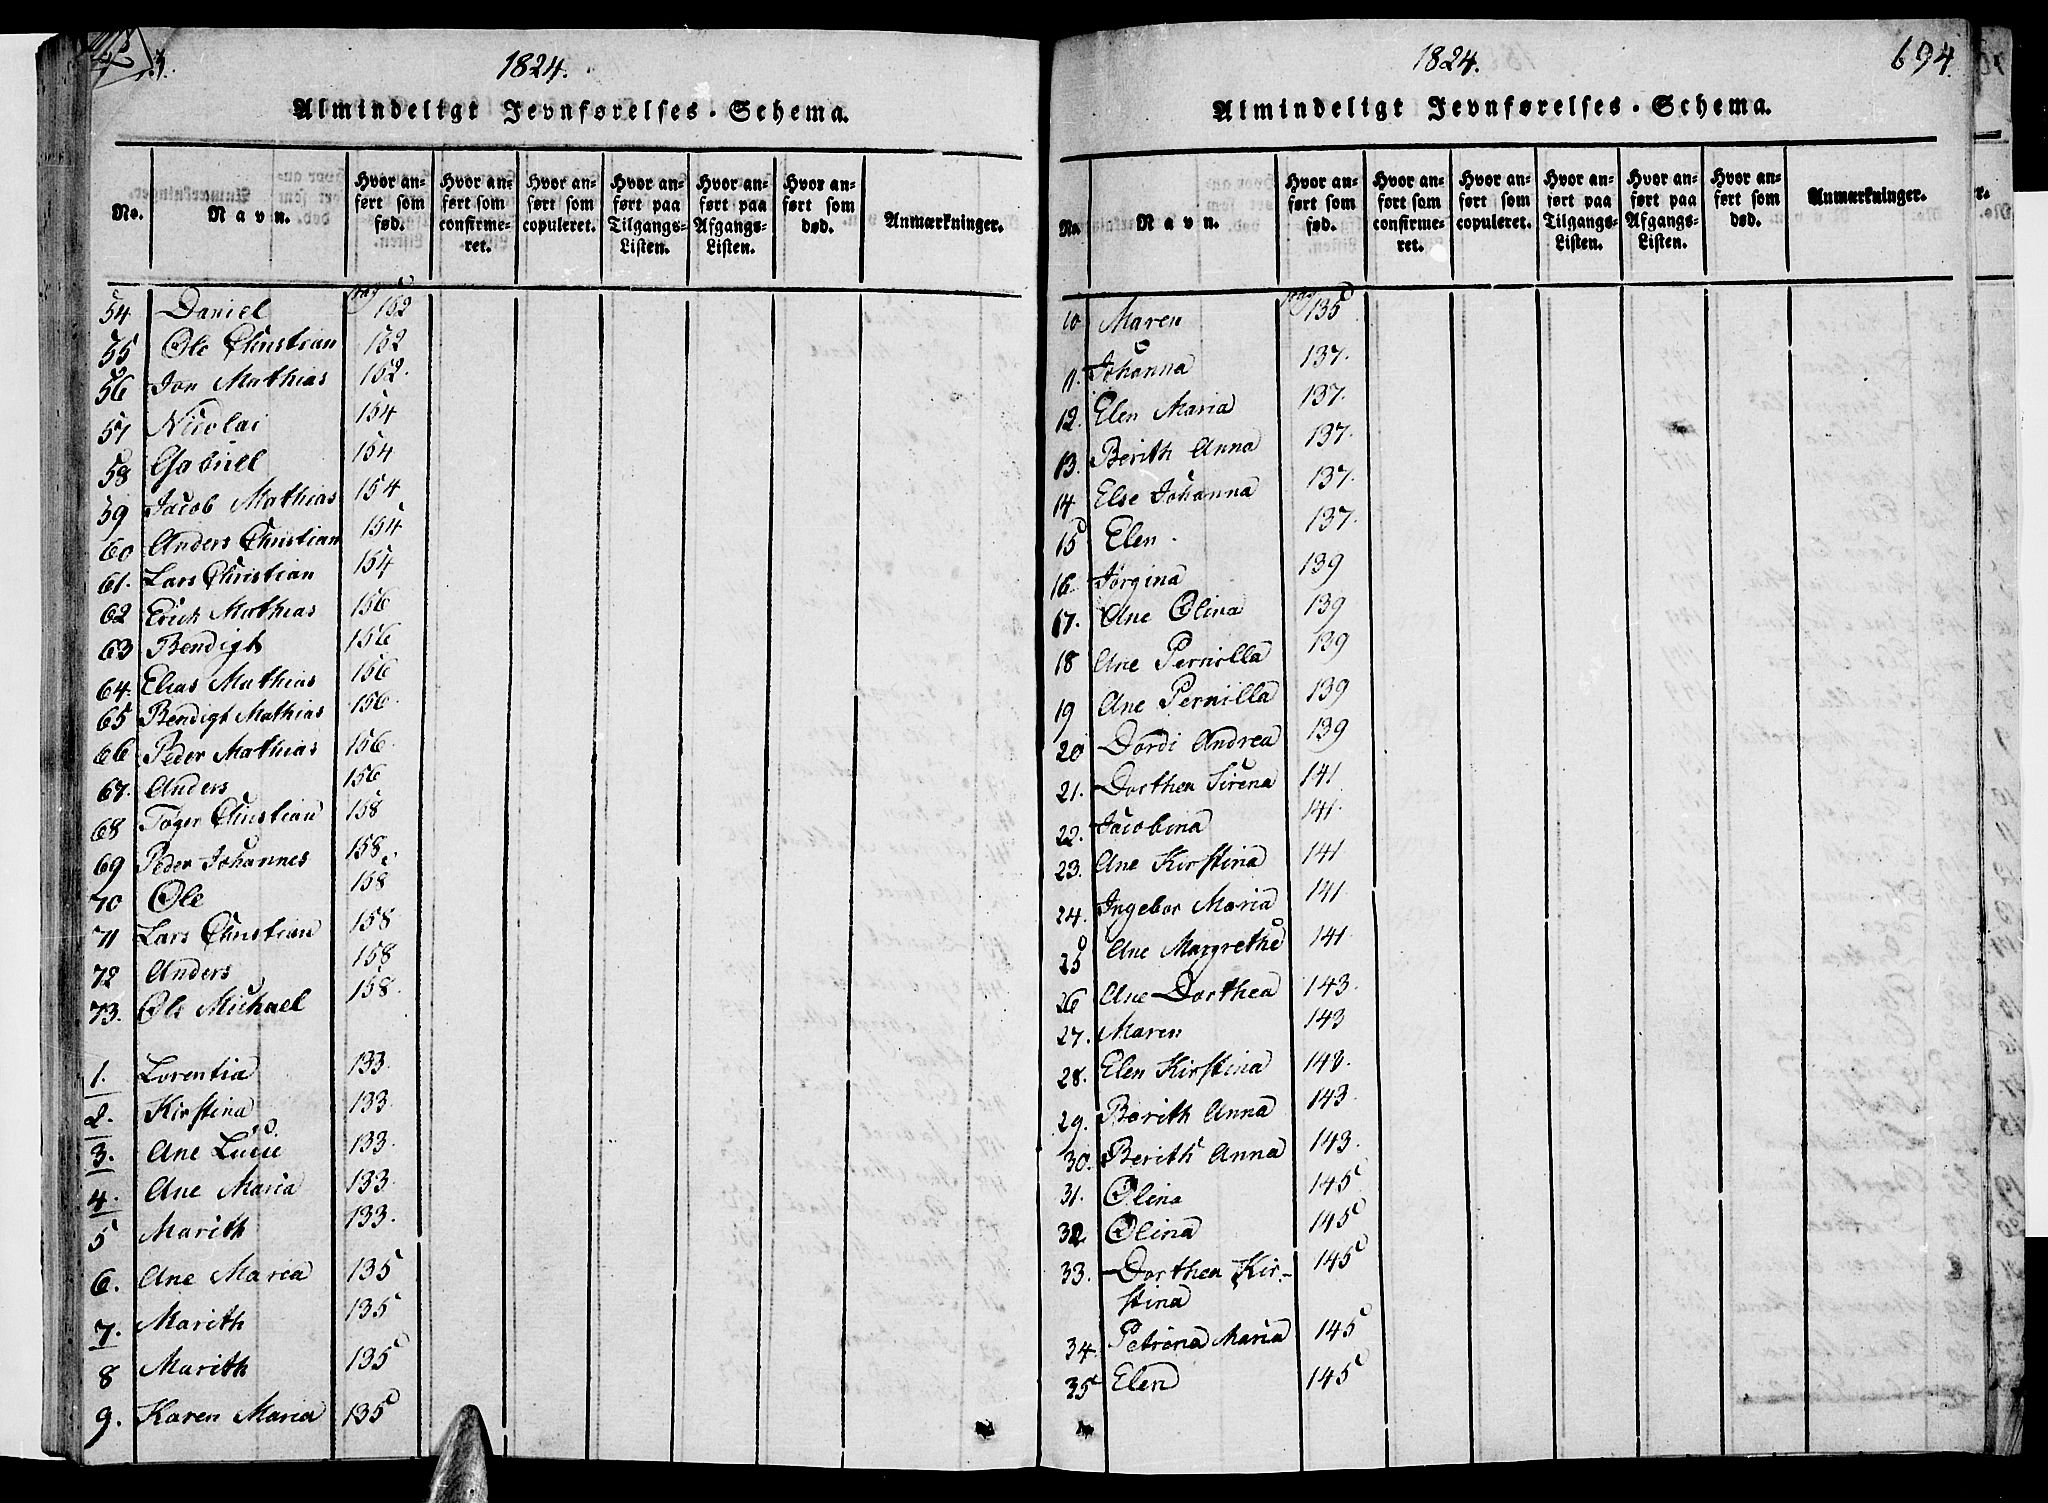 1824.
Almindeligt Jevnførelses-Schema.
No.
Navn.
Hvor an-
ført som
fød.
Hvor an-
ført som
confirme-
ret.
Hvor an-
ført som
copuleret.
Hvor an-
ført paa
Tilgangs-
Listen.
Hvor an-
ført paa
Afgangs-
Listen.
Hvor an-
ført som
død.
Anmærkninger.
54 Daniel pag 152
55 Ole Christian 152
56 Jon Mathias 152.
57 Nicolai 154
58 Gabriel 154
59 Jacob Mathias 154
60 Anders Christian 154
61. Lars Christian 154
62 Erich Mathias 156
63 Bendigt 156
64. Elias Mathias 156
65 Bendigt Mathias 156.
66 Peder Mathias 156.
67. Anders 156
68 Toger Christian 158
69 Peder Johannes 158.
70 Ole 158
71 Lars Christian 158
72 Anders 158
73. Ole Michael 158.
1. Lorentia 133.
2. Kirstina 133.
3. Ane Lucie 133.
4. Ane Maria 133.
5 Marith 133.
6. Ane Maria 135
7. Marith 135
8 Marith 135
9. Karen Maria 135
1824.
694.
Almindeligt Jevnførelses-Schema.
No.
Navn.
Hvor an-
ført som
fød.
Hvor an-
ført som
confirme-
ret.
Hvor an-
ført som
copuleret.
Hvor an-
ført paa
Tilgangs-
Listen.
Hvor an-
ført paa
Afgangs-
Listen.
Hvor an-
ført som
død.
Anmærkninger.
10 Maren pag 135
11. Johanna 137.
12. Elen Maria 137.
13. Berith Anna 137.
14 Else Johanna 137.
15 Elen 137.
16. Jørgina 139
17. Ane Olina 139
18 Ane Pernilla 139
19 Ane Pernilla 139
20 Dordi Andrea 139
21. Dorthea Sirena 141
22. Jacobina 141.
23. Ane Kirstina 141
24. Ingebor Maria 141.
25 Ane Margrethe 141
26 Ane Dorthea 143.
27. Maren 143
28. Elen Kirstina 143.
29. Berith Anna 143.
30. Berith Anna 143.
31. Olina 145
32 Olina 145
33. Dorthea Kir-
stina 145
34. Petrina Maria 145
35 Elen 145